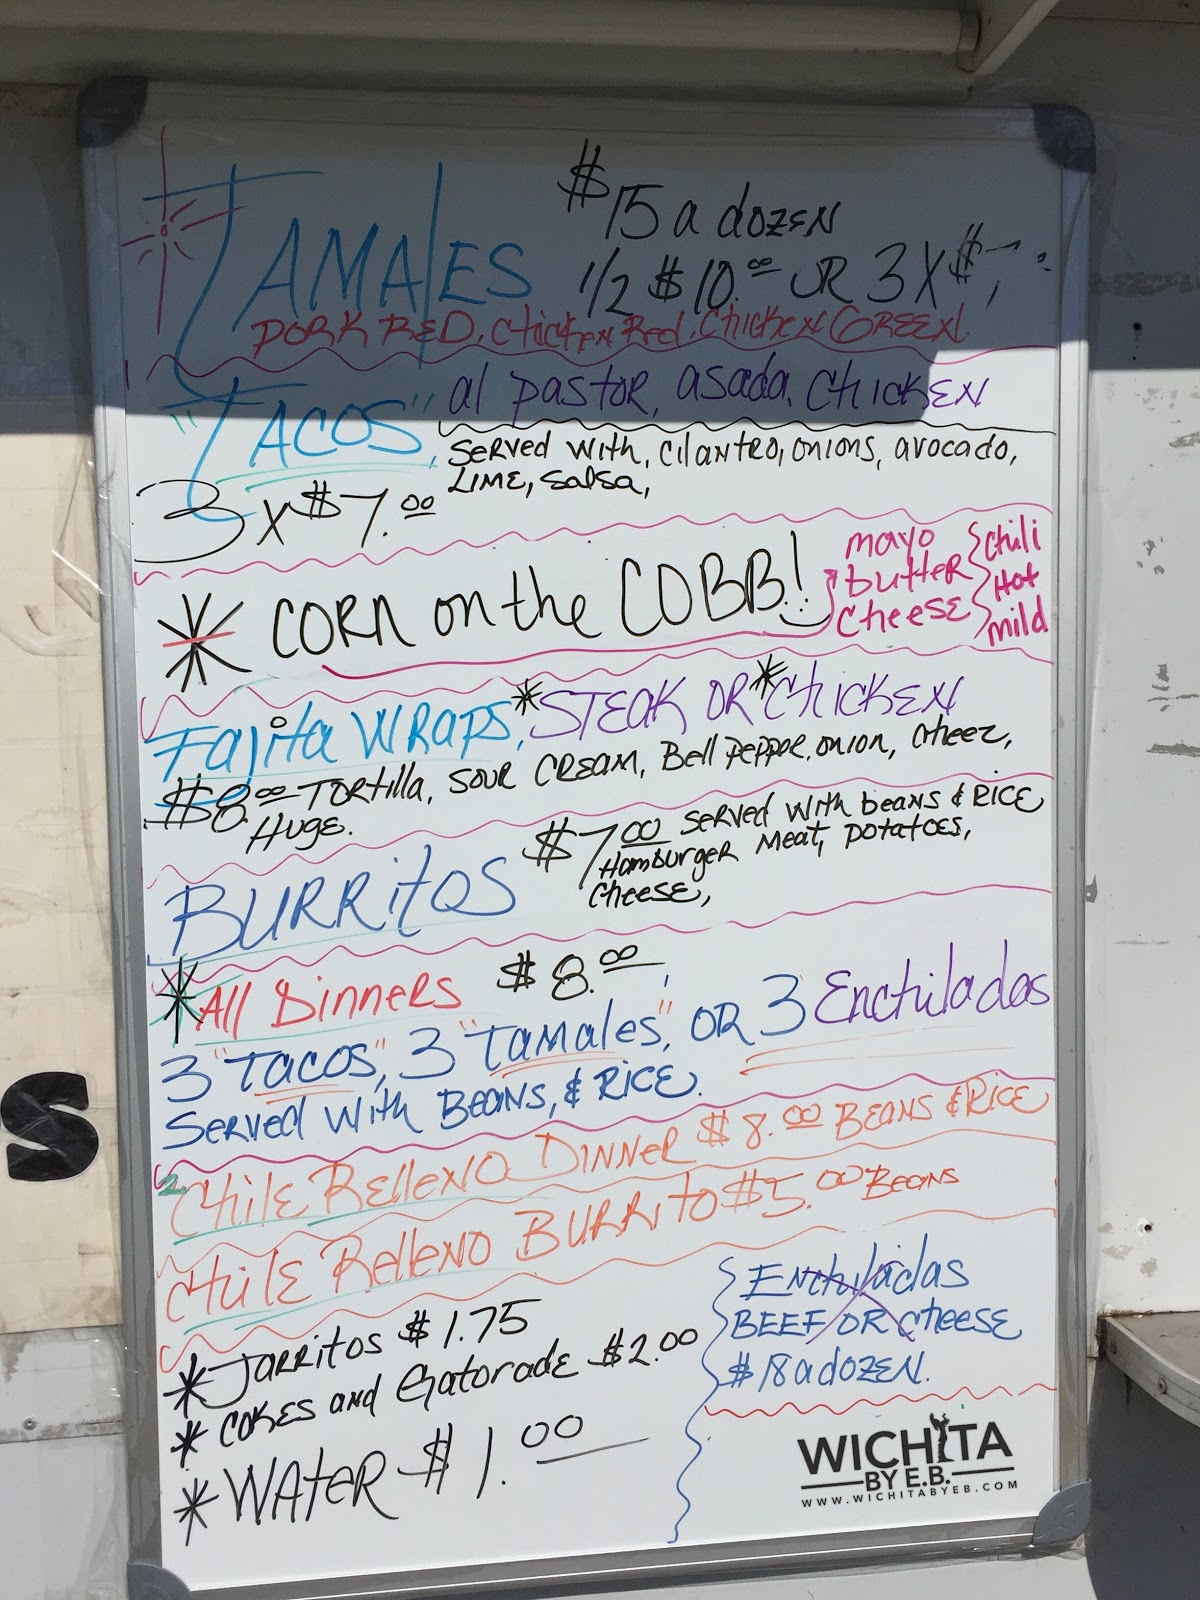 TAMALES $15 a dozen
1/2 $10.00 OR 3 X $
PORK RED, Chicken Red, Chicken GREEN
"TACOS", al pastor, asada, Chicken
Served with, cilantro, onions, avocado,
LIME, Salsa,
3 x $7.00
* CORN on the COBB!
mayo
butter
Cheese
Chili
Hot
mild
Fajita WRAPS, *STEAK OR *Chicken
$8.00 TORtilla, SOUR CREAM, Bell Pepper, onion, Cheez,
HUGE.
BURRitOS $7.00 Served with beans & RICE
Hamburger Meat, Potatoes,
Cheese,
*All Dinners $8.00,
3 "TACOS", 3 "Tamales", OR 3 Enchiladas
Served With Beans, & RICE.
2 Chile Relleno DINNER $8.00 BEANS & RICE
Chile Relleno BURRito $5.00 Beans
* Jarritos $1.75
* COKES and Gatorade $2.00
* WATER $1.00
Enchiladas
BEEF OR Cheese
$18 a dozen.
WICHITA
BY E.B.
WWW.WICHITABYEB.COM
S